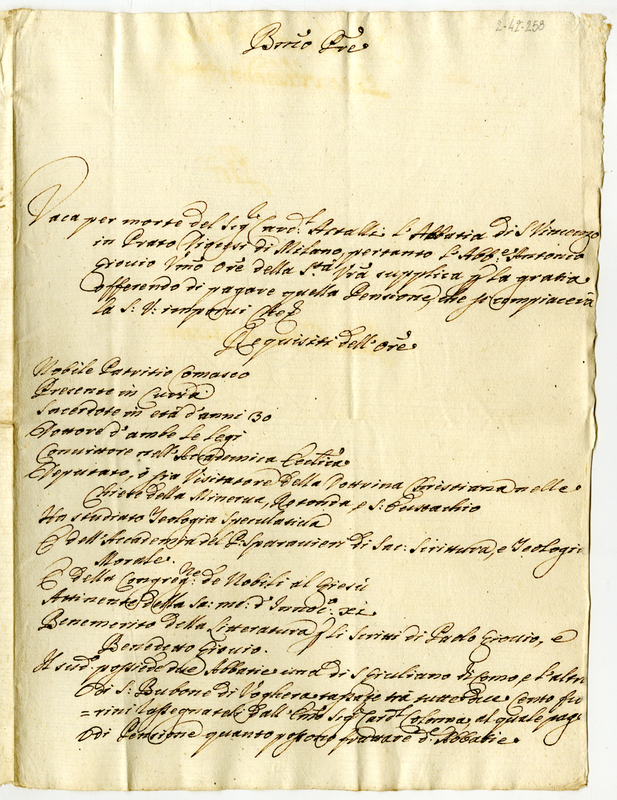 2-42-258
Bmo Pre
Vaca per morte del Sigr Card.l Astalli l'Abbatia di S Vincenzo
in Prato Diocesi di Milano, pertanto l'Abb.e Antonio
Giovio Umo Ore della Stà Vrã supplica p la gratia
offerendo di pagare quella Pensione, che si compiacerà
la S: V: imporui
Requisiti dell'Ore
Nobile Patritio Comasco
Presente in Curia
Sacerdote in età d'anni 30
Dottore d'ambe le legi
Convittore nell'Academica
Deputato, ò sia Visitatore della Dottrina Christiana nelle
Chiese della Minerva, Rotonda, e S: Eustachio
Ha studiato Teologia Speculativa
È dell'Accademia del P: Sparavieri di Sac: Scrittura, e Teologia
Morale.
È della Congreg.ne de Nobili al Giesù
Attinente della Sa: me: d'Innoc: xi
Benemerito della Litteratura p li Scritti di Paolo Giovio, e
Benedetto Giovio.
Il sud.o possiede due Abbatie una di S Giuliano di Como, e l'altra
di S: Bubone di Voghera tassate trà tutte due Cento fio
=rini assegnateli dall'Emo Sigr Card.l Colonna, al quale paga
di Pensione quanto possono fruttare d.e Abbatie.